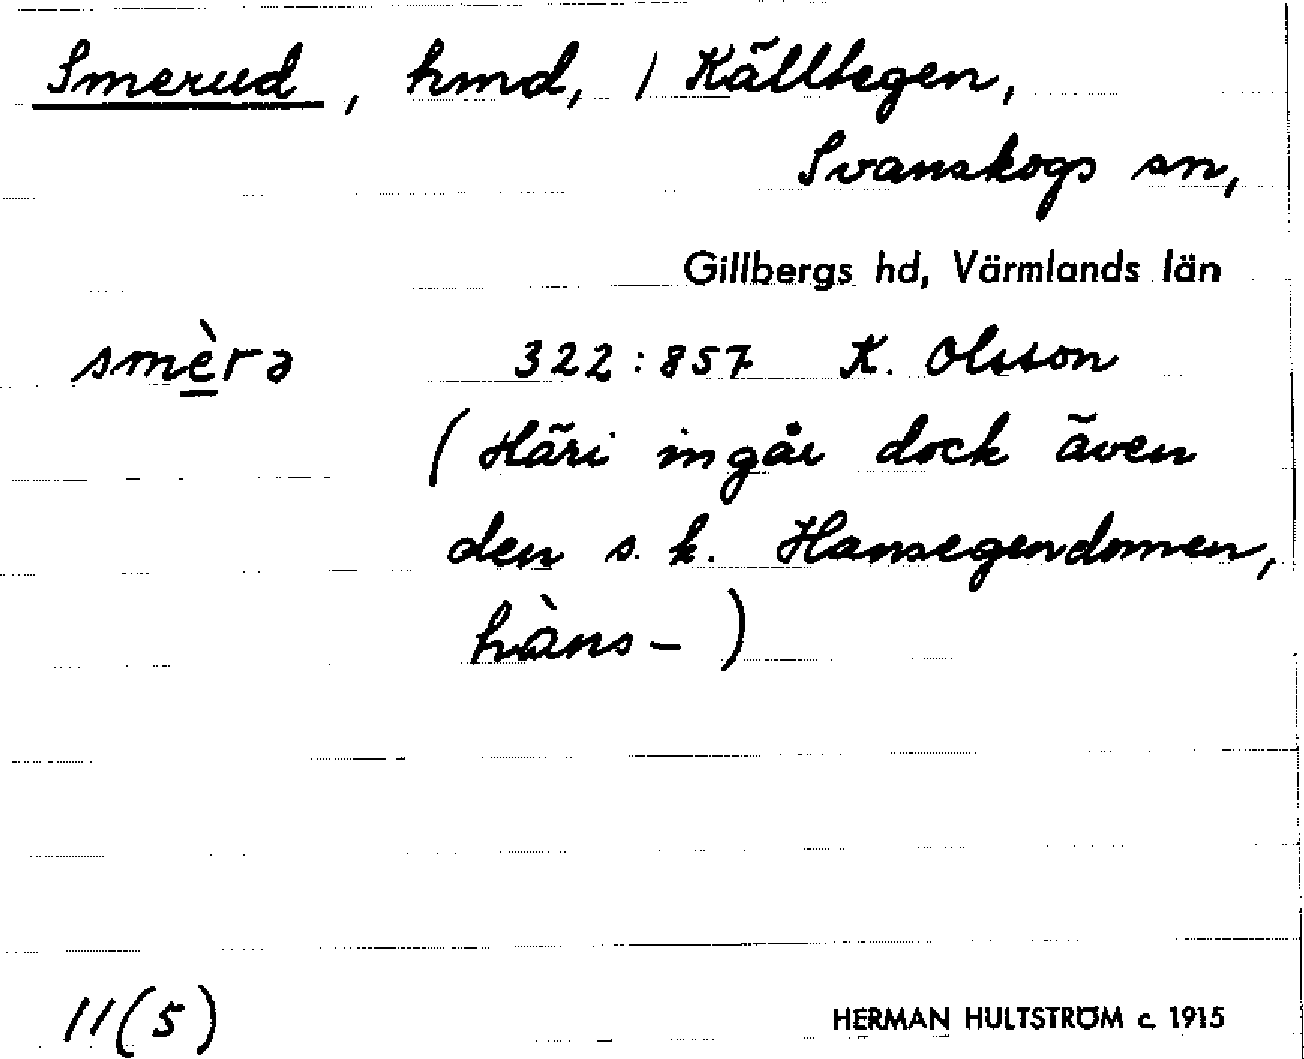 Smerud, hmd, / Källtegen,
Svanskogs sn,
Gillbergs hd, Värmlands län
smèrə 322:857 K. Olsson
(Häri ingår dock även
den s.k. Hansegendomen,
hàns- )
11(5) HERMAN HULTSTRÖM c. 1915